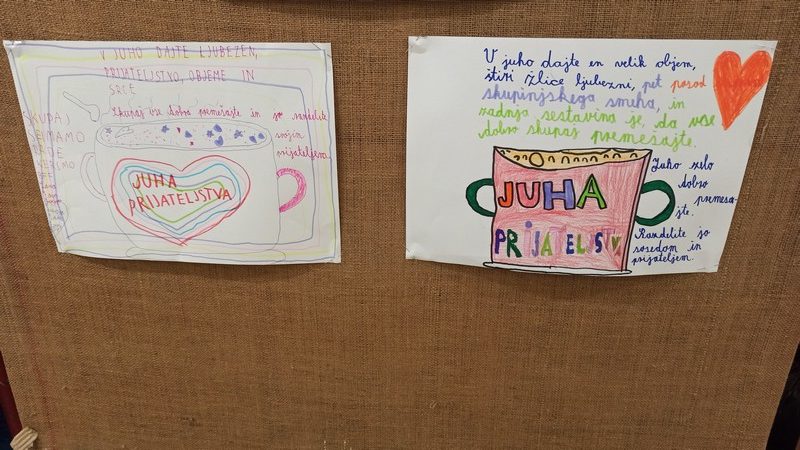 V JUHO DAJTE LJUBEZEN,
PRIJATELJSTVO, OBJEME IN
SRCE
Skupaj vse dobro premešajte in jo razdelite
svojim
prijateljem.
JUHA
PRIJATELJSTVA
V juho dajte en velik objem,
štiri žlice ljubezni, pet posod
skupinjskega smeha, in
zadnja sestavina je, da vse
dobro skupaj premešajte.
JUHA
PRIJATELJSTV
Juho zelo
dobro
premeša-
jte.
Razdelite jo
sosedom in
prijateljem.